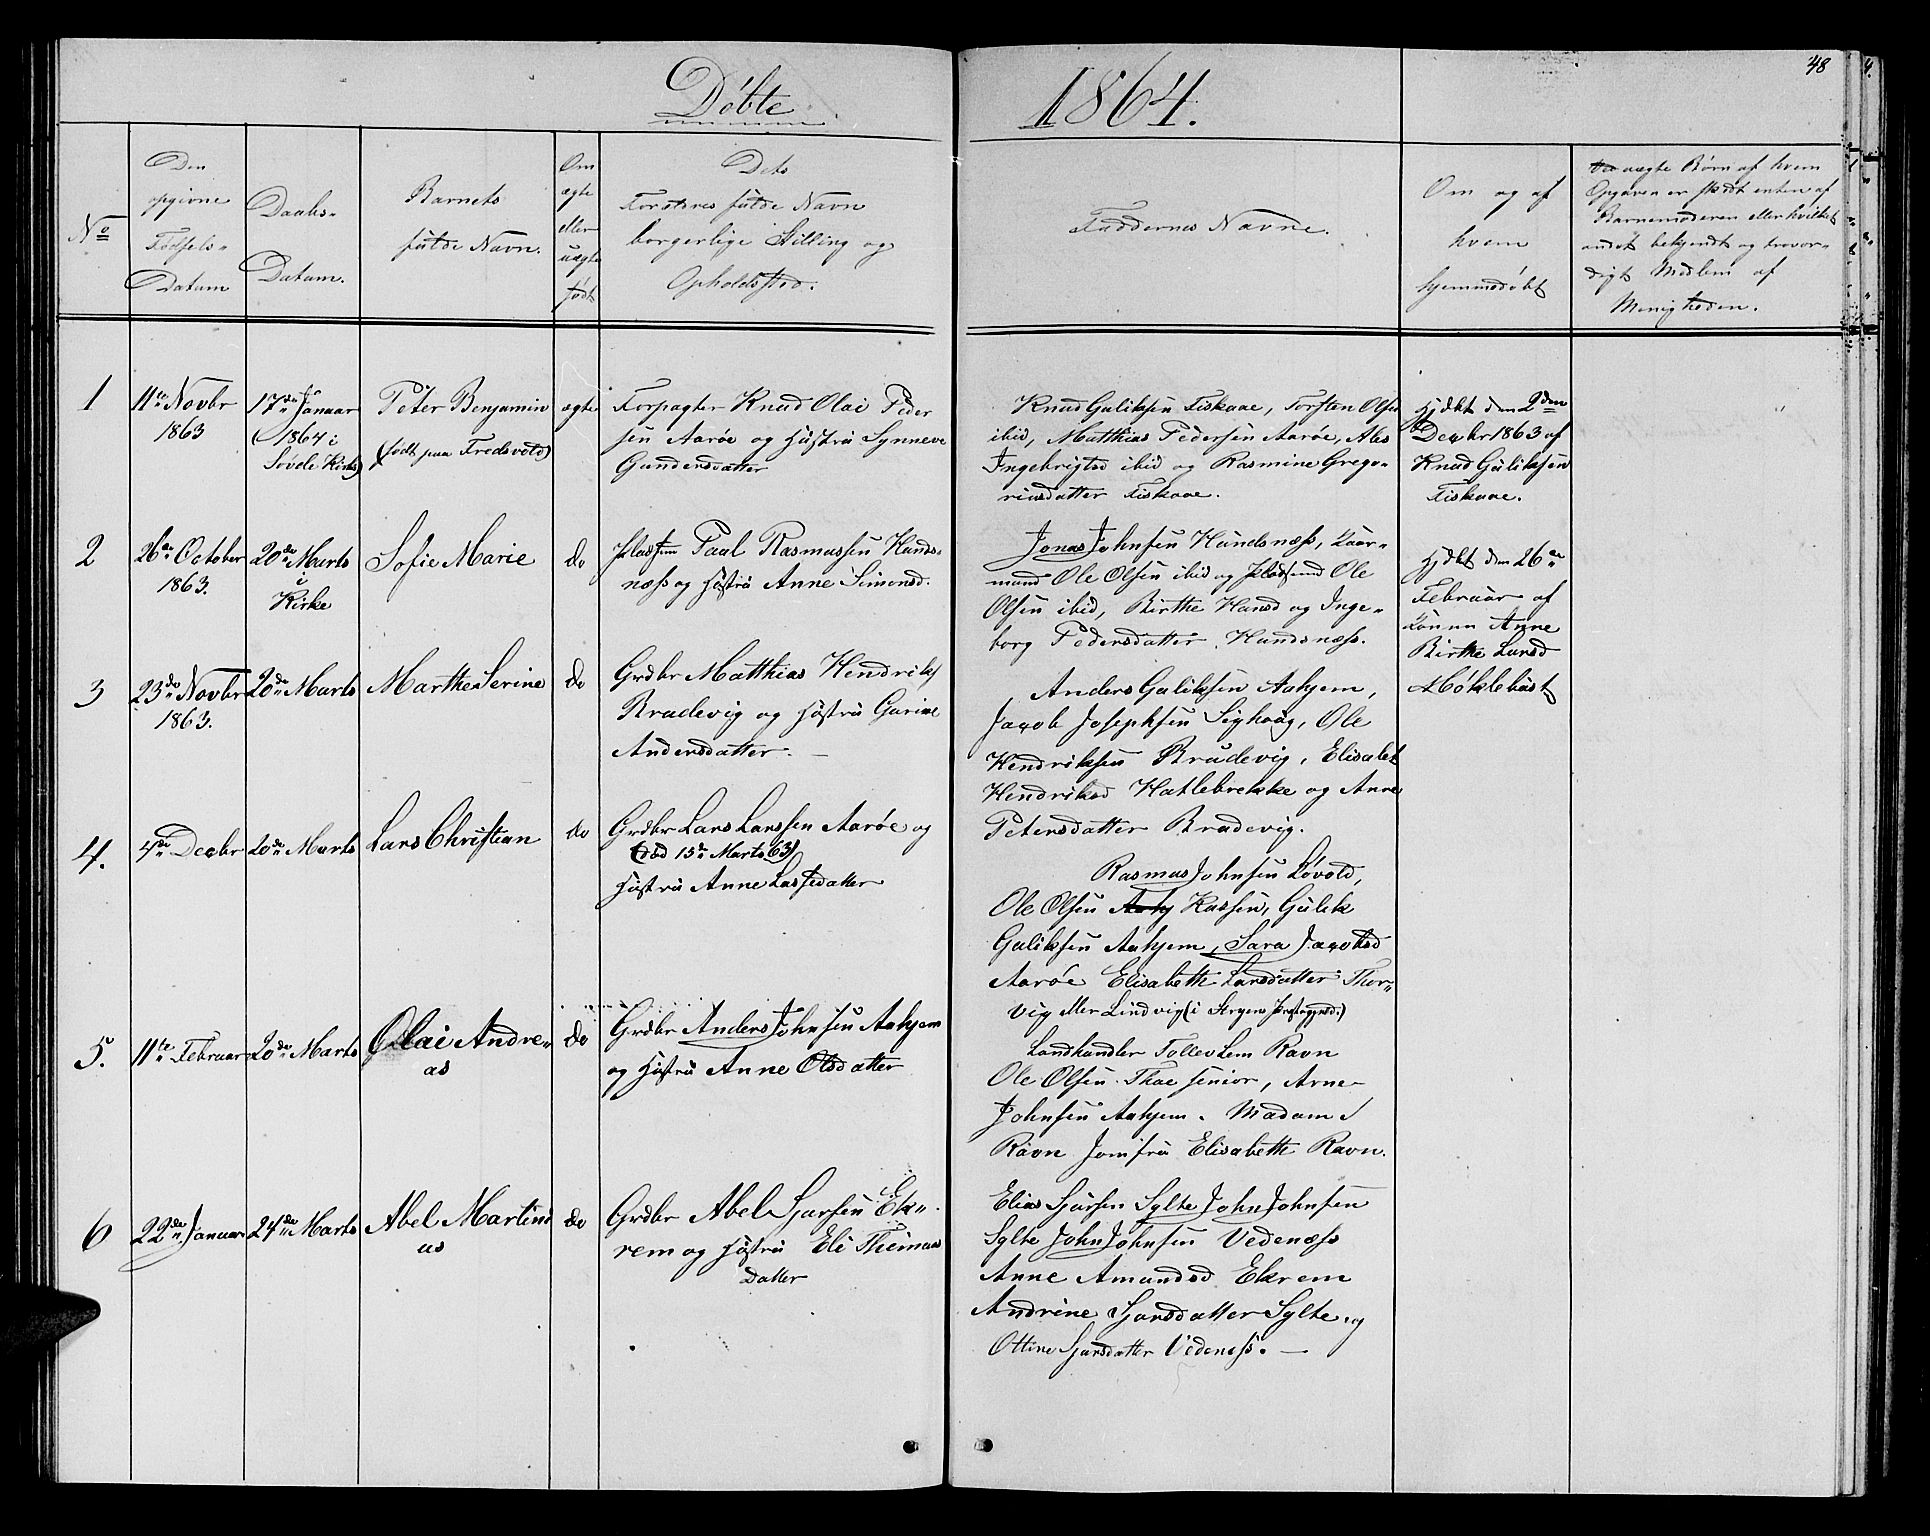 Døbte
1864.
48
No
Den
opgivne
Fødsels-
Datum
Daabs-
Datum.
Barnets
fulde Navn.
Om
ægte
eller
uægte
født
Dets
Forældres fulde Navn
borgerlige Stilling og
Opholdssted.
Faddernes Navne.
Om og af
hvem
hjemmedøbt
uægte Børn af hvem
Opgaven er skedt enten af
Barnemoderen eller hvilket
andet bekjendt og trovær-
digt Medlem af
Menigheden.
1
11te Novbr
1863
17de Januar
(1864 i
Søvde Kirke)
Peter Benjamin
(født paa Fredsvold)
ægte
Forpagter Knud Olai Peder
sen Aarøe og Hustru Synneve
Gundersdatter
Knud Guliksen Fiskaae, Torsten Olsen
ibid, Matthias Pedersen Aarøe, Abs
Ingebrigtsd ibid og Rasmine Grego-
riusdatter Fiskaae.
Hjdbt den 2den
Decbr 1863 af
Knud Guliksen
Fiskaae.
2
26de October
1863.
20de Marts
i
Kirke
Sofie Marie
do
Pladsm Paul Rasmussen Hunds-
næss og Hustru Anne Simonsd.
Jonas Johnsen Hundsnæss, Kaar-
mand Ole Olsen ibid og Pladsmd Ole
Olsen ibid, Birthe Hansd og Inge-
borg Pedersdatter Hundsnæss.
Hjdbt den 26de
Februar af
Konen Anne
Birthe Larsd
Møklebust
3
23de Novbr
1863.
20de Marts
Marthe Serine
do
Grdbr Matthias Hendriks
Brudevig og Hustru Gurine
Andersdatter. —
Anders Guliksen Aahjem,
Jacob Josephsen Sighoug, Ole
Hendriksen Brudevig, Elisabet
Hendriksd Hatlebrekke og Anne
Petersdatter Brudevig.
4.
4de Decbr
20de Marts
Lars Christian
do
Grdbr Lars Larssen Aarøe og
(død 15de Marts 63)
Hustru Anne Lassedatter
Rasmus Johnsen Løvold,
Ole Olsen Aahj Kassen, Gulik
Guliksen Aahjem, Sara Jacobsd
Aarøe Elisabeth Larsdatter Thor-
vig eller Lindvig (i Stryens Præstegjeld.)
5.
11te Februar
20de Marts
Olai Andre-
as
do
Grdbr Anders Johnsen Aahjem
og Hustru Anne Olsdatter
Landhandler Tollev Lem Ravn
Ole Olsen Thue senior, Arne
Johnsen Aahjem. Madam
Ravn Jomfru Elisabeth Ravn.
6
22de Januar
24de Marts
Abel Martin
us
do
Grdbr Abel Sjursen Ek-
rem og Hustru Eli Thomas
datter
Elias Sjursen Sylte John Johnsen
Sylte John Johnsen Vedenæss
Anne Amundsd Ekrem
Andrine Sjursdatter Sylte og
Ottine Sjursdatter Vedenæss. —